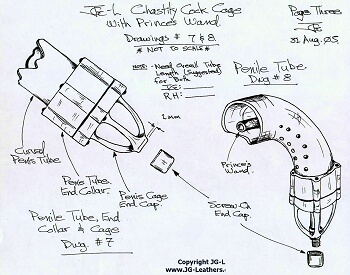 JG-L Chastity Cock Cage
With Prince's Wand
Drawings # 7 & 8
* NOT to SCALE *
Pages Three
31 Aug. 05
NOTE: - Need Overall Tube
Length (Suggested)
For Both
RH:
Penile Tube
Dwg # 8
2mm
Curved
Penis Tube
Penis Tube
End Collar.
Penis Cage
End Cap.
Prince's
Wand.
Screw-On
End Cap.
Penile Tube, End
Collar & Cage
Dwg. # 7
Copyright JG-L
www.JG-Leathers.